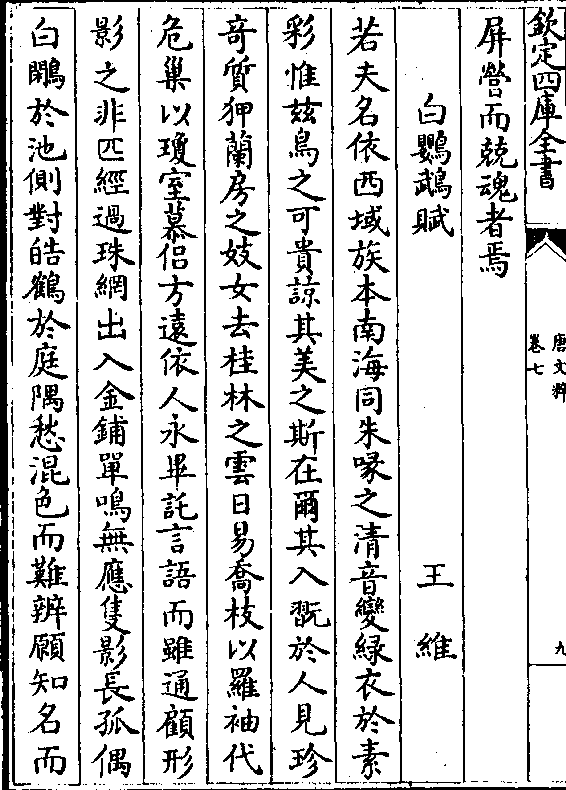 欽定四庫全書
唐文粹
卷七
九
屏營而競魂者焉
白鸚鵡賦 王維
若夫名依西域族本南海同朱喙之清音變緑衣於素
彩惟兹鳥之可貴諒其美之斯在爾其入翫於人見珍
奇質狎蘭房之妓女去桂林之雲日易喬枝以羅袖代
危巢以瓊室慕侣方遠依人永畢託言語而雖通顧形
影之非匹經過珠網出入金鋪單鳴無應隻影長孤偶
白鷴於池側對皓鶴於庭隅愁混色而難辨願知名而